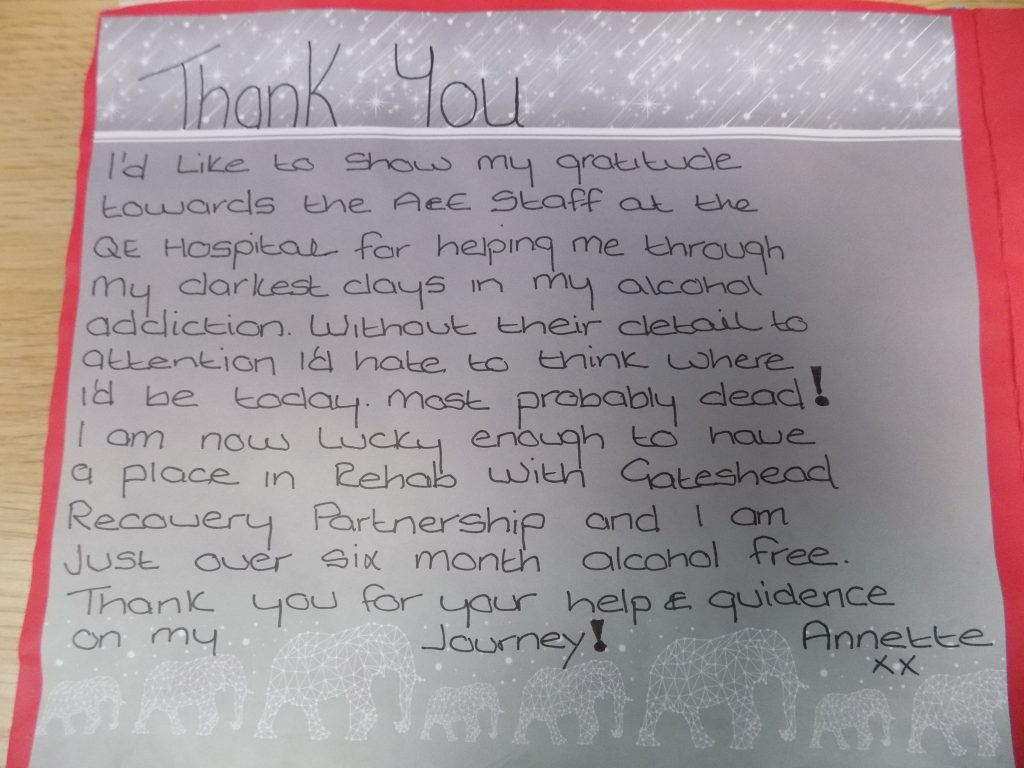 Thank You
I'd Like to show my gratitude
towards the A&E Staff at the
QE Hospital for helping me through
my darkest days in my alcohol
addiction. Without their detail to
attention I'd hate to think where
I'd be today. Most probably dead!
I am now lucky enough to have
a place in Rehab with Gateshead
Recowery Partnership and I am
Just over six month alcohol free.
Thank you for your help & guidence
on my Journey! Annette
xx